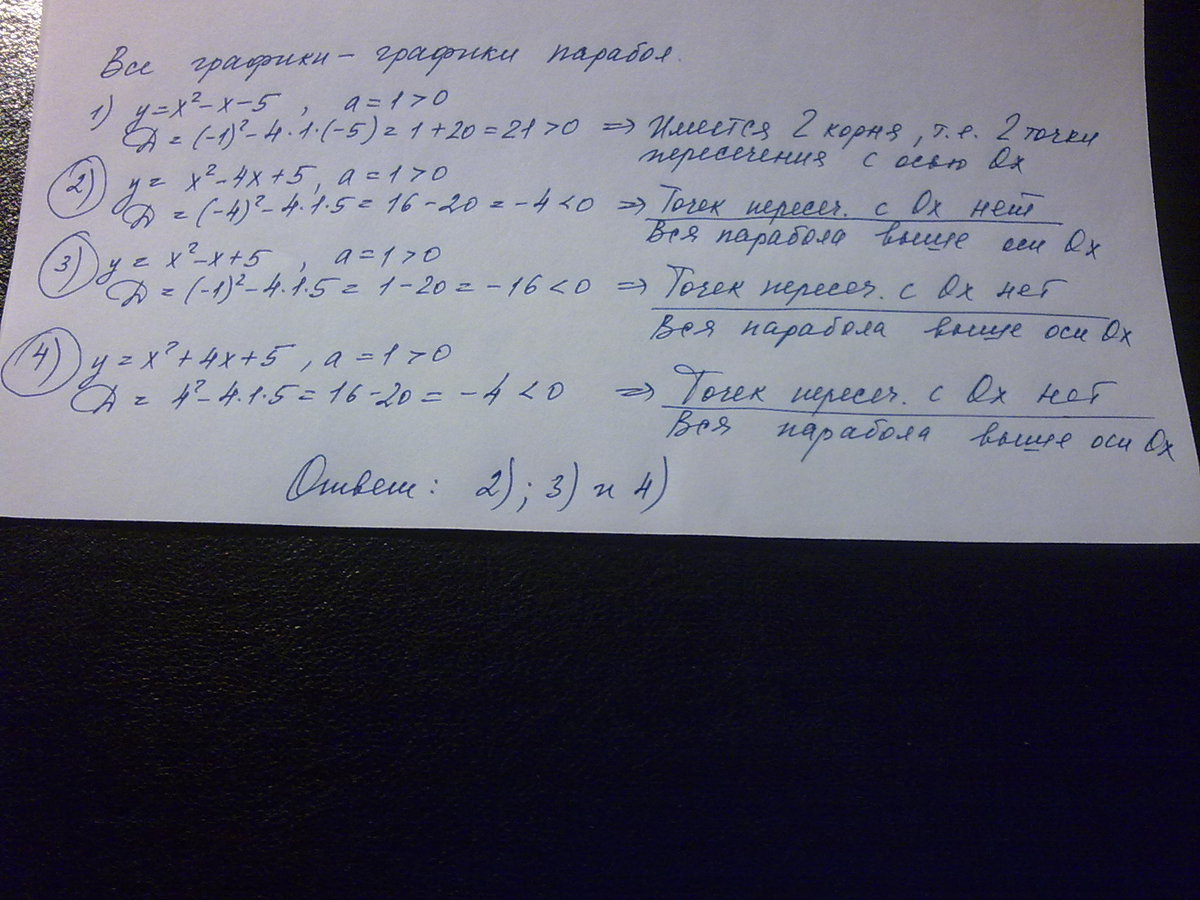 Все графики – графики парабол.
1) y = x² – x – 5 , a = 1 > 0
D = (-1)² – 4·1·(-5) = 1 + 20 = 21 > 0 ⇒ Имеется 2 корня, т.е. 2 точки
пересечения с осью Ox
2) y = x² – 4x + 5, a = 1 > 0
D = (-4)² – 4·1·5 = 16 – 20 = –4 < 0 ⇒ Точек пересеч. с Ox нет
Вся парабола выше оси Ox
3) y = x² – x + 5 , a = 1 > 0
D = (-1)² – 4·1·5 = 1 – 20 = –16 < 0 ⇒ Точек пересеч. с Ox нет
Вся парабола выше оси Ox
4) y = x² + 4x + 5 , a = 1 > 0
D = 4² – 4·1·5 = 16 – 20 = –4 < 0 ⇒ Точек пересеч. с Ox нет
Вся парабола выше оси Ox
Ответ: 2) ; 3) и 4)